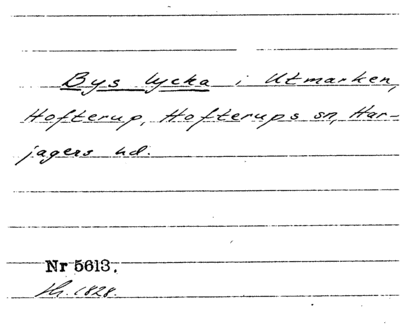 Bys lycka i Utmarken,
Hofterup, Hofterups sn, Har-
jagers hd.
Nr 5613.
th. 1828.